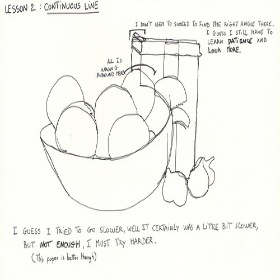 LESSON 2 : CONTINUOUS LINE
I DON'T SEEM TO SUCCEED TO FIND THE RIGHT ANGLE THERE.
I GUESS I STILL HAVE TO
LEARN PATIENCE AND
LOOK MORE.
ALL IS
WRONG
AROUND HERE
I GUESS I TRIED TO GO SLOWER, WELL IT CERTAINLY WAS A LITTLE BIT SLOWER,
BUT NOT ENOUGH, I MUST TRY HARDER.
(This paper is better though)